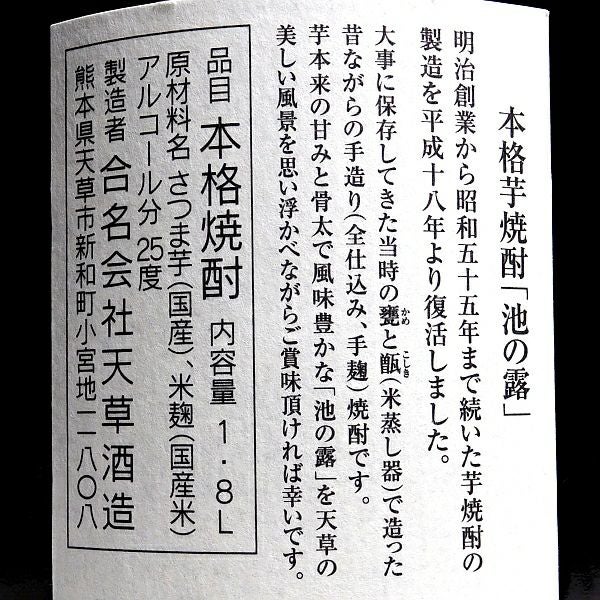 本格芋焼酎「池の露」
明治創業から昭和五十五年まで続いた芋焼酎の
製造を平成十八年より復活しました。
大事に保存してきた当時の甕(かめ)と甑(こしき)(米蒸し器)で造った
昔ながらの手造り(全仕込み、手麹)焼酎です。
芋本来の甘みと骨太で風味豊かな「池の露」を天草の
美しい風景を思い浮かべながらご賞味頂ければ幸いです。
品目 本格焼酎 内容量 1.8L
原材料名 さつま芋(国産)、米麹(国産米)
アルコール分 25度
製造者 合名会社天草酒造
熊本県天草市新和町小宮地一一八〇八